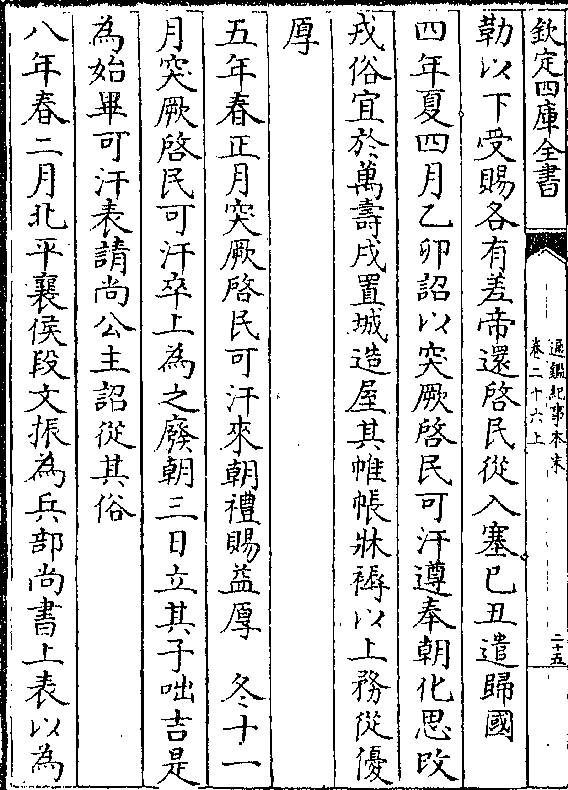 欽定四庫全書
通鑑紀事本末
卷二十六上
二十五
勒以下受賜各有差帝還啓民從入塞己丑遣歸國
四年夏四月乙卯詔以突厥啓民可汗遵奉朝化思改
戎俗宜於萬壽戍置城造屋其帷帳牀褥以上務從優
厚
五年春正月突厥啓民可汗來朝禮賜益厚 冬十一
月突厥啓民可汗卒上為之廢朝三日立其子咄吉是
為始畢可汗表請尚公主詔從其俗
八年春二月北平襄侯段文振為兵部尚書上表以為